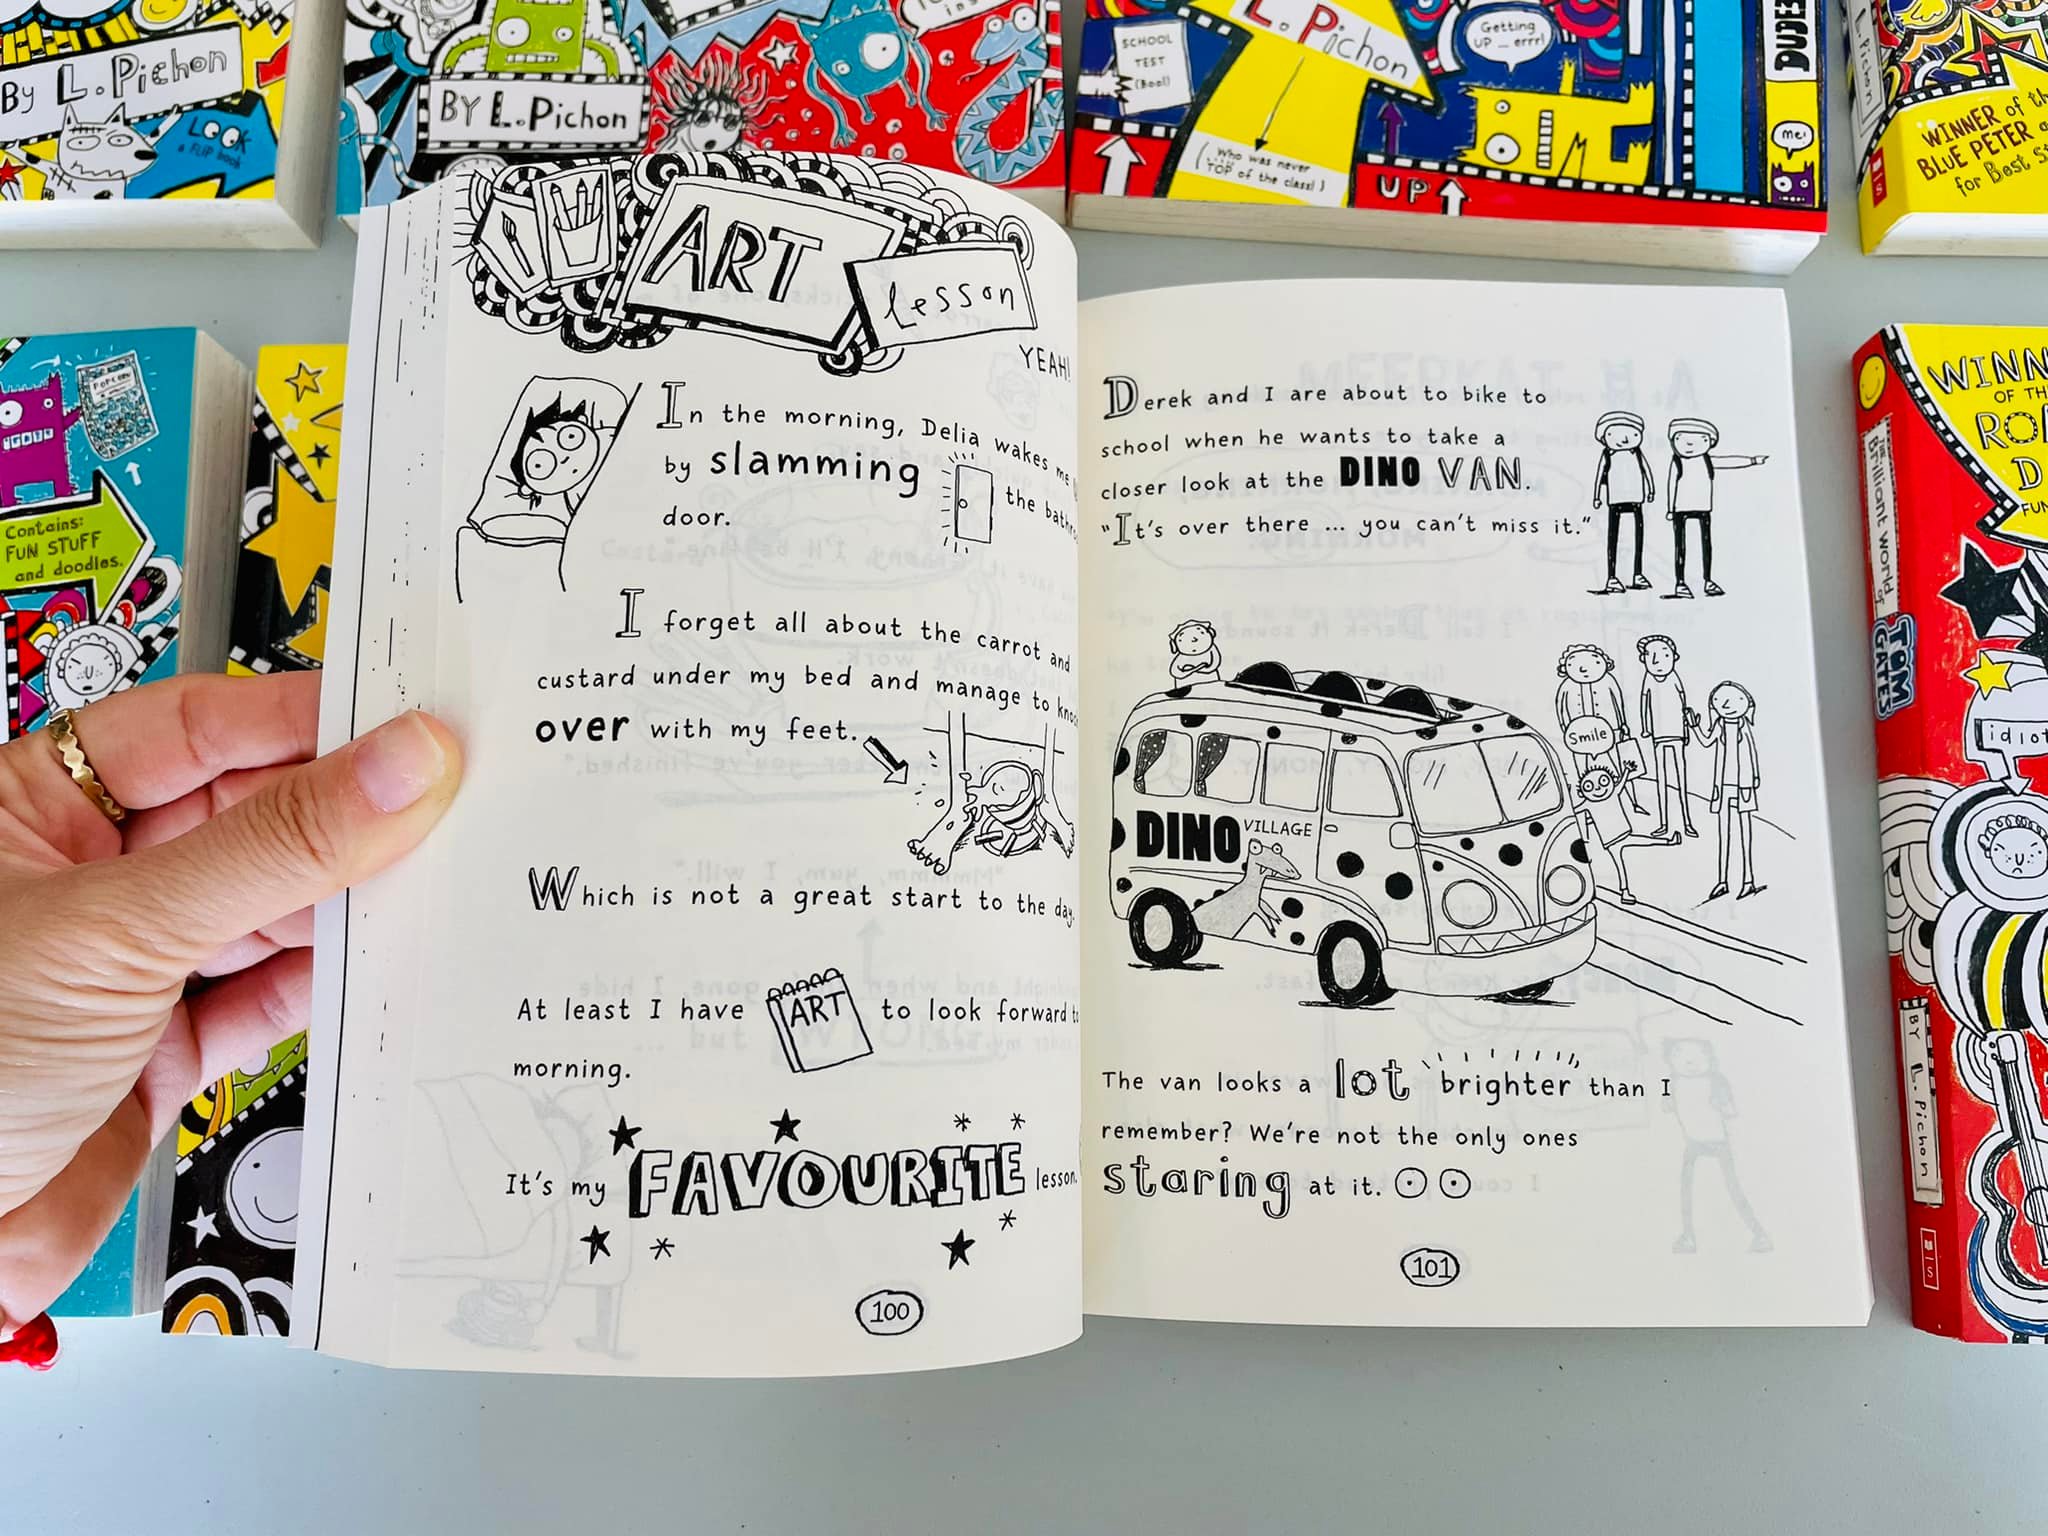 By L. Pichon
Look
a FLIP book
BY L. Pichon
SCHOOL
TEST
(Boo!)
L. Pichon
(Who was never
TOP of the class!)
Getting
UP _ errr!
UP
me!
L. Pichon
WINNER of the
BLUE PETER
for Best
POPCORN
Contains:
FUN STUFF
and doodles.
ART
Lesson
YEAH!
In the morning, Delia wakes me
by slamming the
door.
I forget all about the carrot and
custard under my bed and manage to
over with my feet.
Which is not a great start to the day.
At least I have ART to look forward
morning.
It's my FAVOURITE lesson.
100
Derek and I are about to bike to
school when he wants to take a
closer look at the DINO VAN.
"It's over there ... you can't miss it."
Smile
DINO VILLAGE
The van looks a lot 'brighter' than I
remember? We're not the only ones
staring at it.
101
OF THE
The Brilliant world of
TOM GATES
idiot
BY L. Pichon